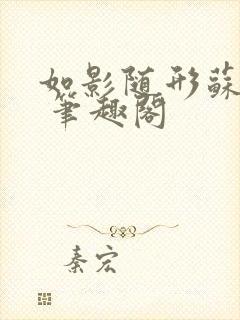 如影随形蘇
笔趣阁
秦宏